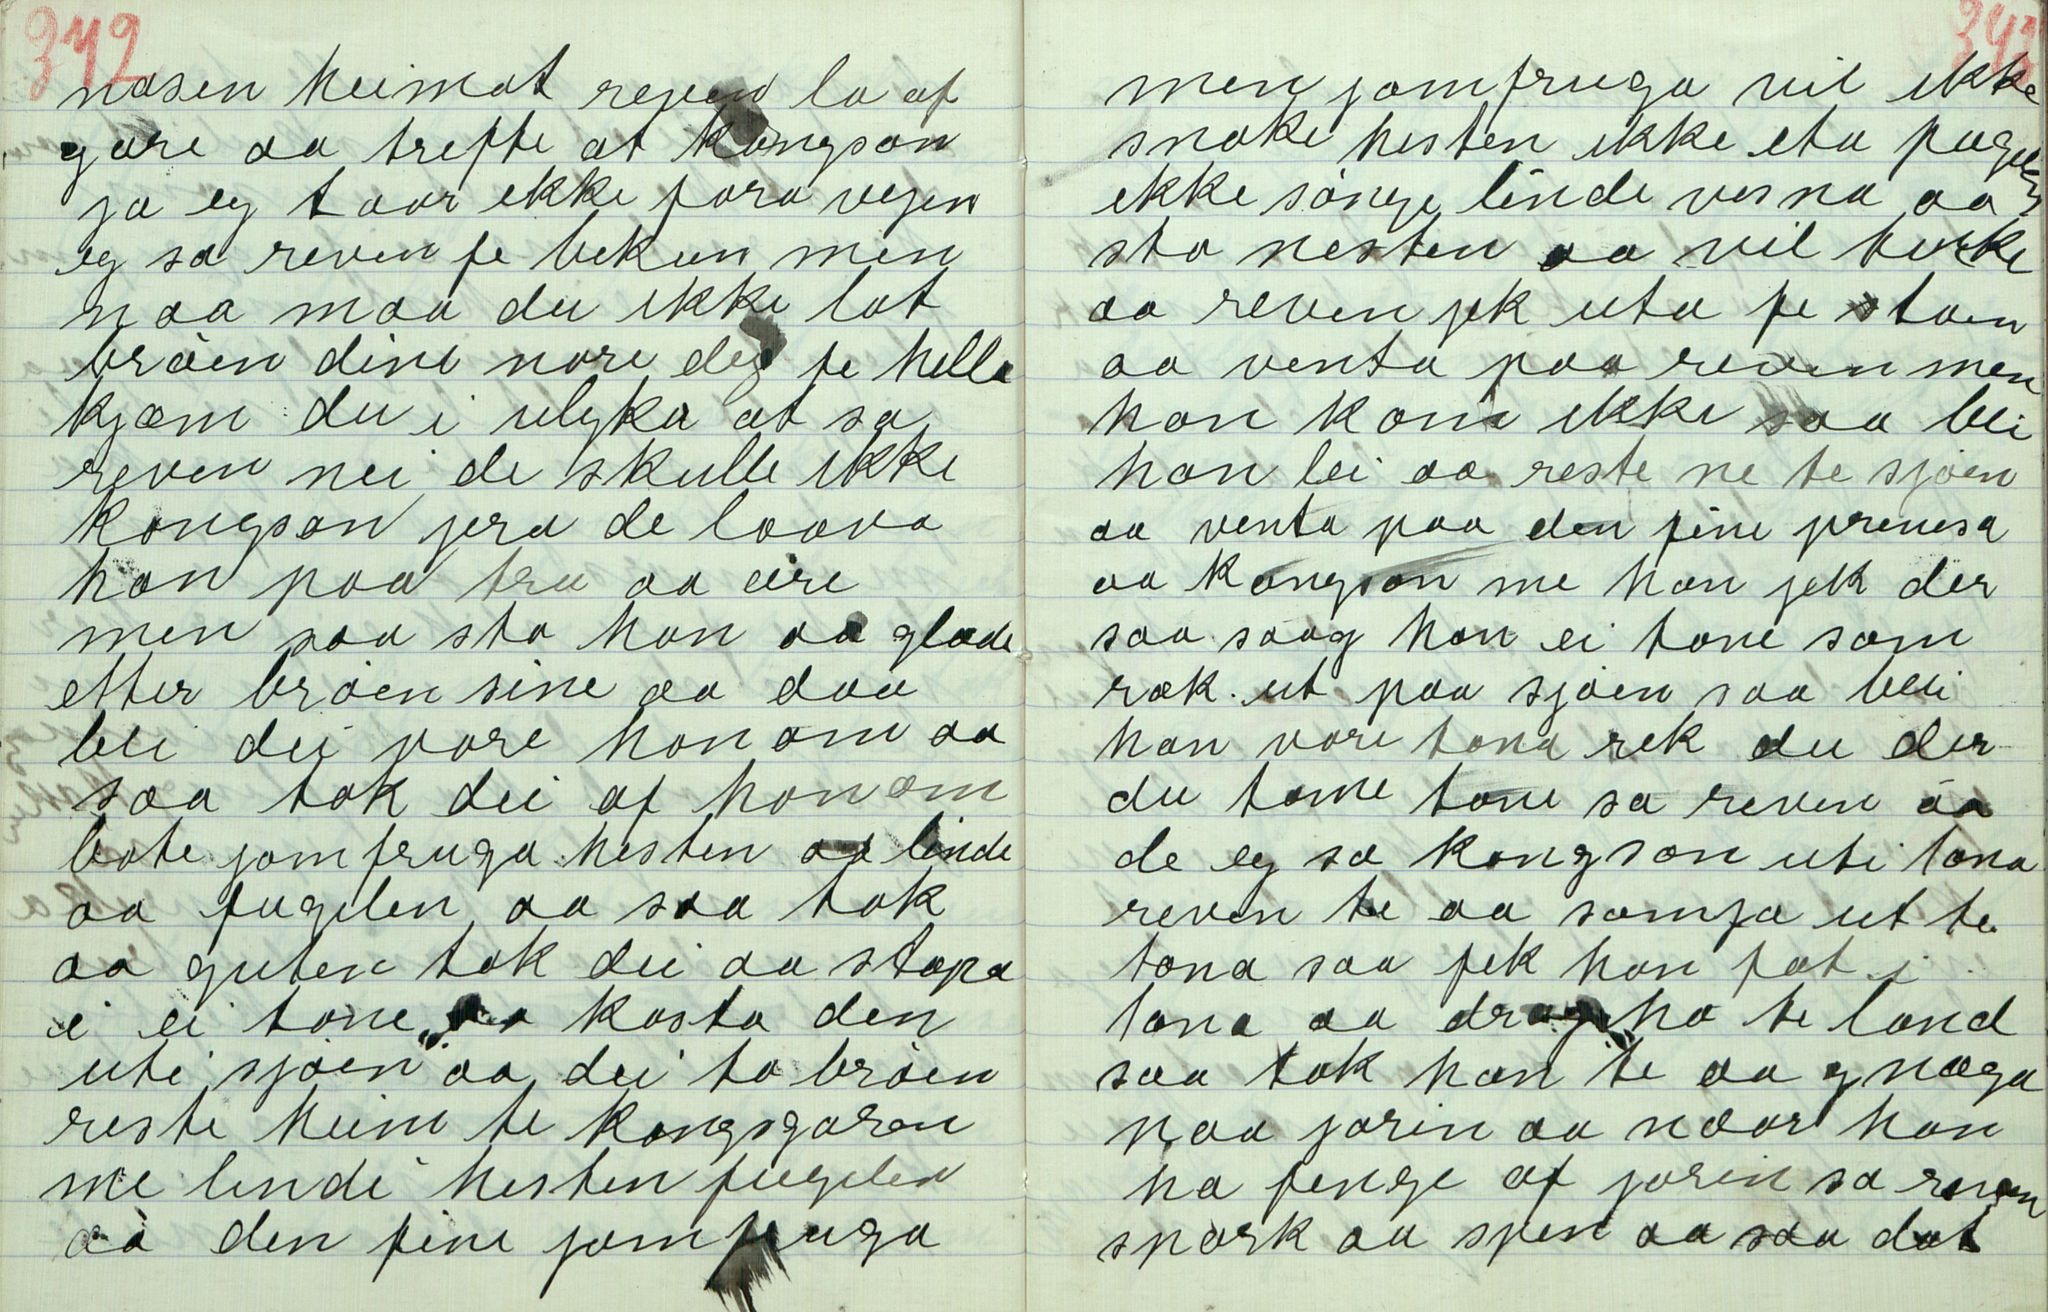 342
nasen heimat reven la af
gare aa trefte at kongson
ja eg taar ikke fara vejen
eg sa reven fe bekun men
naa maa du ikke lat
bröen dine nare deg fe hella
kjæm du i ulyka at sa
reven nei de skulle ikke
kongson jera de laava
han paa tru aa ære
men saa sta han aa glade
etter bröen sine aa daa
blei dei vare honom aa
saa tok dei af honom
bote jomfruga hesten aa linde
aa fugelen aa saa tok
aa guten tok dei aa stapa
i ei tone aa kasta den
uti sjöen aa dei to bröen
reste heim te kongsgaren
me linde hesten fugelen
aa den fine jomfruga
343
men jomfruga vil ikke
snake hesten ikke eta fugelen
ikke sönge linde vesna aa
sta nesten aa vil turke
aa reven jek uta fe staen
aa venta paa reven men
han kom ikke saa blei
han lei aa reste ne te sjöen
aa venta paa den fine prinsesa
aa kongson me han jek der
saa saag han ei tone som
rak ut paa sjöen saa blei
han vare tona rek du der
du tome tone sa reven aa
de eg sa kongson uti tona
reven te aa sömja ut te
tona saa fek han fat i
tona aa drag ho te land
saa tok han te aa gnaga
paa jorin aa naar han
ha fenge af jorin sa reven
spark aa spen aa saa dat